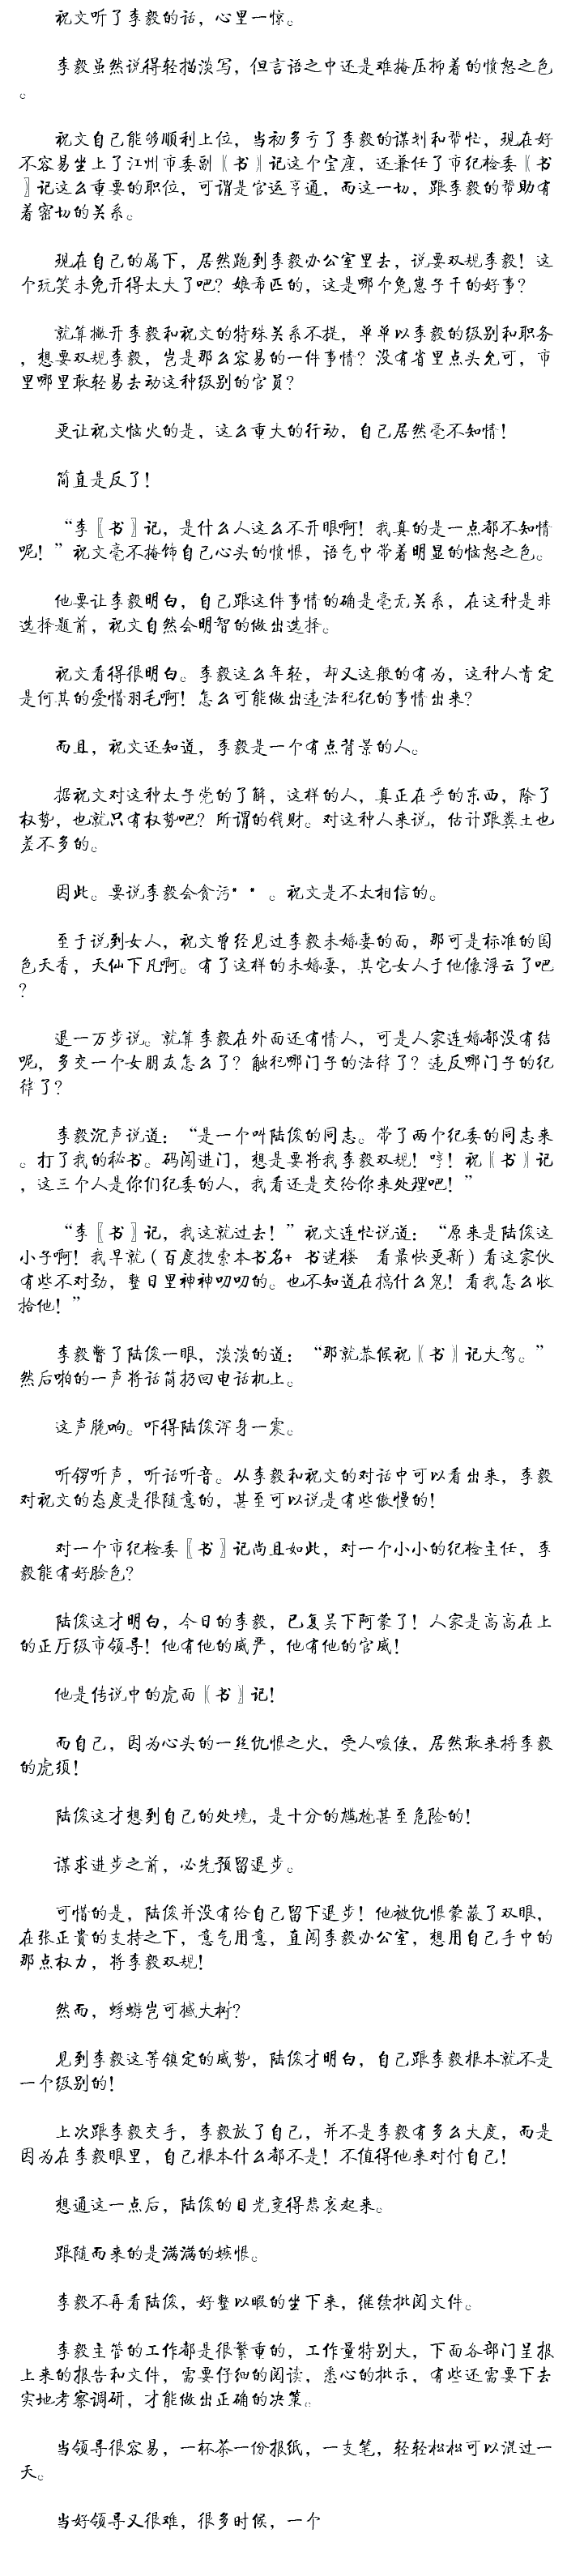 祝文听了李毅的话，心里一惊。
李毅虽然说得轻描淡写，但言语之中还是难掩压抑着的愤怒之色
。
祝文自己能够顺利上位，当初多亏了李毅的谋划和帮忙，现在好
不容易坐上了江州市委副〖书〗记这个宝座，还兼任了市纪检委〖书
〗记这么重要的职位，可谓是官运亨通，而这一切，跟李毅的帮助有
着密切的关系。
现在自己的属下，居然跑到李毅办公室里去，说要双规李毅！这
个玩笑未免开得太大了吧？娘希匹的，这是哪个兔崽子干的好事？
就算撇开李毅和祝文的特殊关系不提，单单以李毅的级别和职务
，想要双规李毅，岂是那么容易的一件事情？没有省里点头允可，市
里哪里敢轻易去动这种级别的官员？
更让祝文恼火的是，这么重大的行动，自己居然毫不知情！
简直是反了！
“李〖书〗记，是什么人这么不开眼啊！我真的是一点都不知情
呢！”祝文毫不掩饰自己心头的愤恨，语气中带着明显的恼怒之色。
他要让李毅明白，自己跟这件事情的确是毫无关系，在这种是非
选择题前，祝文自然会明智的做出选择。
祝文看得很明白。李毅这么年轻，却又这般的有为，这种人肯定
是何其的爱惜羽毛啊！怎么可能做出违法犯纪的事情出来？
而且，祝文还知道，李毅是一个有点背景的人。
据祝文对这种太子党的了解，这样的人，真正在乎的东西，除了
权势，也就只有权势吧？所谓的钱财。对这种人来说，估计跟粪土也
差不多的。
因此。要说李毅会贪污··。祝文是不太相信的。
至于说到女人，祝文曾经见过李毅未婚妻的面，那可是标准的国
色天香，天仙下凡啊。有了这样的未婚妻，其它女人于他像浮云了吧
？
退一万步说。就算李毅在外面还有情人，可是人家连婚都没有结
呢，多交一个女朋友怎么了？触犯哪门子的法律了？违反哪门子的纪
律了？
李毅沉声说道：“是一个叫陆俊的同志。带了两个纪委的同志来
。打了我的秘书。码闯进门，想是要将我李毅双规！哼！祝〖书〗记
，这三个人是你们纪委的人，我看还是交给你来处理吧！”
“李〖书〗记，我这就过去！”祝文连忙说道：“原来是陆俊这
小子啊！我早就（百度搜索本书名+ 书迷楼 看最快更新）看这家伙
有些不对劲，整日里神神叨叨的。也不知道在搞什么鬼！看我怎么收
拾他！”
李毅瞥了陆俊一眼，淡淡的道：“那就恭候祝〖书〗记大驾。”
然后啪的一声将话筒扔回电话机上。
这声脆响。吓得陆俊浑身一震。
听锣听声，听话听音。从李毅和祝文的对话中可以看出来，李毅
对祝文的态度是很随意的，甚至可以说是有些傲慢的！
对一个市纪检委〖书〗记尚且如此，对一个小小的纪检主任，李
毅能有好脸色？
陆俊这才明白，今日的李毅，已复吴下阿蒙了！人家是高高在上
的正厅级市领导！他有他的威严，他有他的官威！
他是传说中的虎面〖书〗记！
而自己，因为心头的一丝仇恨之火，受人唆使，居然敢来捋李毅
的虎须！
陆俊这才想到自己的处境，是十分的尴尬甚至危险的！
谋求进步之前，必先预留退步。
可惜的是，陆俊并没有给自己留下退步！他被仇恨蒙蔽了双眼，
在张正贵的支持之下，意气用意，直闯李毅办公室，想用自己手中的
那点权力，将李毅双规！
然而，蜉蝣岂可撼大树？
见到李毅这等镇定的威势，陆俊才明白，自己跟李毅根本就不是
一个级别的！
上次跟李毅交手，李毅放了自己，并不是李毅有多么大度，而是
因为在李毅眼里，自己根本什么都不是！不值得他来对付自己！
想通这一点后，陆俊的目光变得悲哀起来。
跟随而来的是满满的嫉恨。
李毅不再看陆俊，好整以暇的坐下来，继续批阅文件。
李毅主管的工作都是很繁重的，工作量特别大，下面各部门呈报
上来的报告和文件，需要仔细的阅读，悉心的批示，有些还需要下去
实地考察调研，才能做出正确的决策。
当领导很容易，一杯茶一份报纸，一支笔，轻轻松松可以混过一
天。
当好领导又很难，很多时候，一个